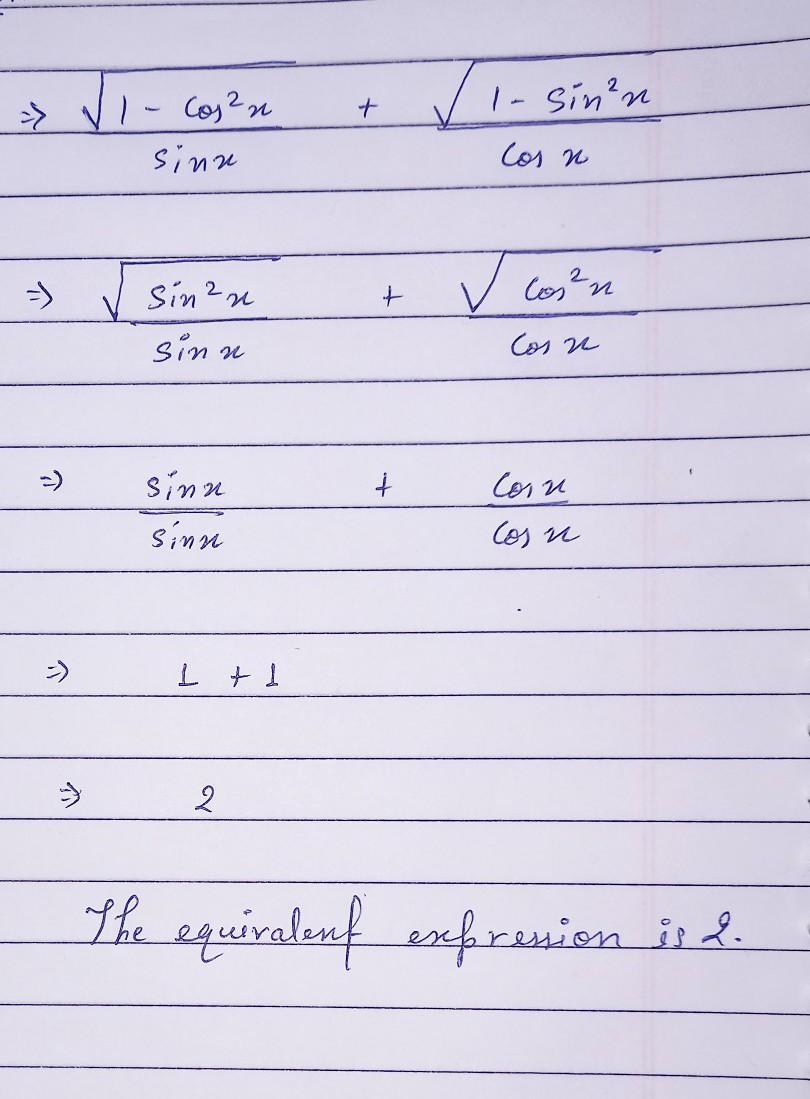 ⇒ √1 - Cos²x / sinx + √1 - Sin²x / Cos x
⇒ √Sin²x / sinx + √Cos²x / Cos x
⇒ sinx / sinx + Cosx / Cos x
⇒ 1 + 1
⇒ 2
The equivalent expression is 2.